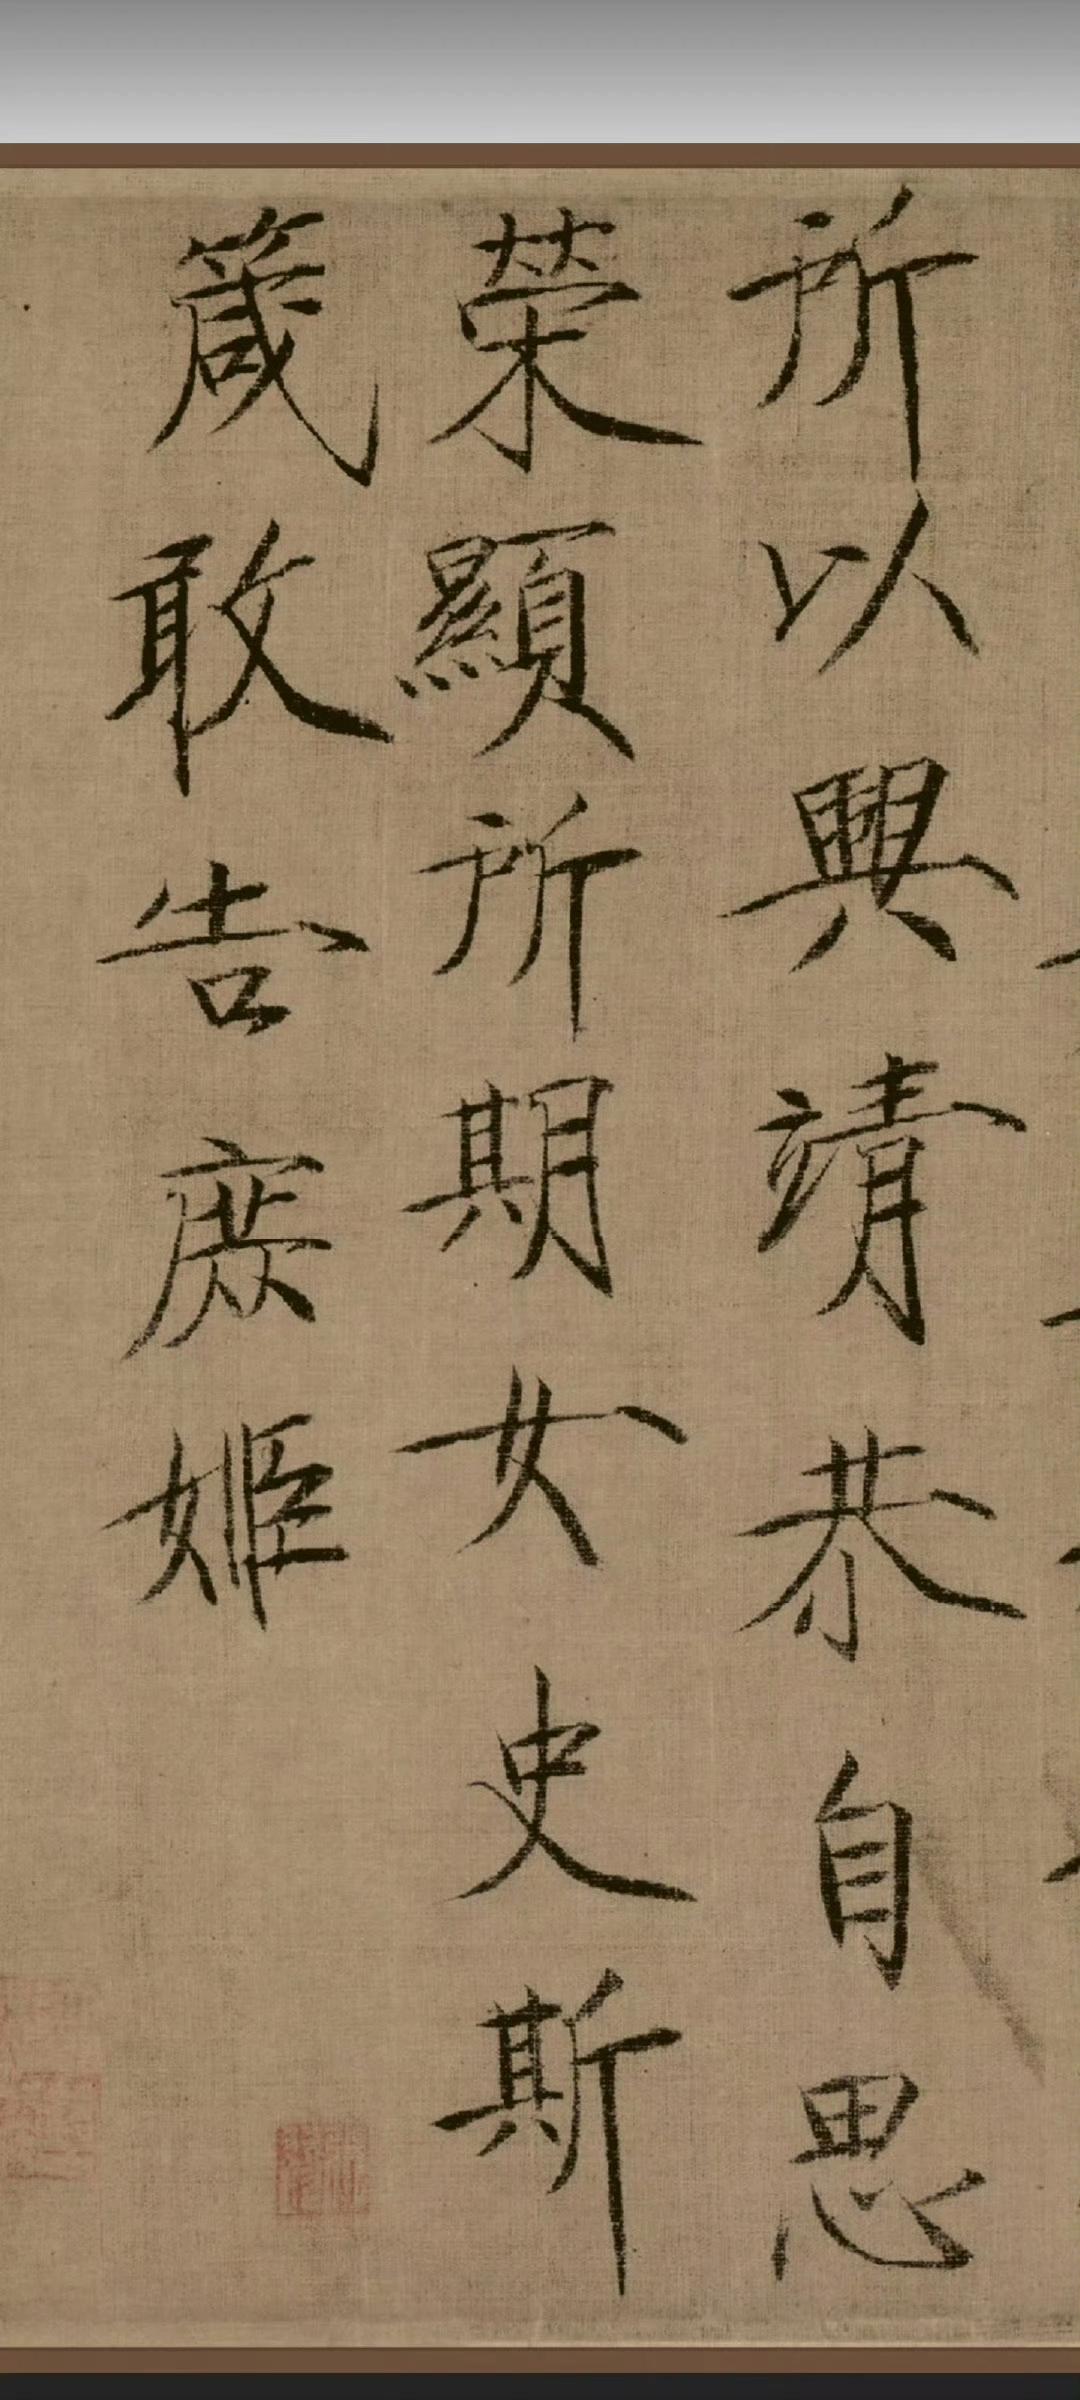 所以興靖恭自思
榮顯所期女史斯
箴敢告庶姬